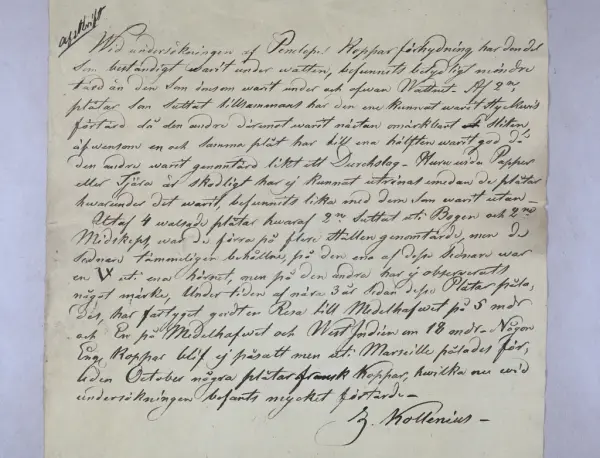 afskrift
Wid undersökningen af Penelopes Kopparförhydning har den del
som beständigt warit under watten, befunnits betydligt mindre
tärd än den som ömsom warit under och ofwan Vattnet. Af 2ne
plåtar som suttit tillsammans har den ene kunnat warit styckwis
förtärd då den andre däremot warit nästan omärkbart sliten
äfwensom en och samma plåt har till ena hälften warit god då
den andre warit genomtärd likt ett Durchslag - Huruwida Papper
eller Tjära är skadligt har ej kunnat utrönas emedan de plåtar
hwarunder det warit, befunnits lika med dem som warit utan -
Utaf 4 walsade plåtar hwaraf 2ne suttit uti Bogen och 2ne
Midskeps, war de förra på flere ställen genomtärde, men de
sednare tämmeligen behållne, på den ena af dessa sednare war
en V uti ena hörnet, men på den andra har ej observerats
något märke, Under tiden af nära 3 år sedan dessa Plåtar påla,
des, har fartyget gjordt en Resa till Medelhafwet på 5 mdr
och En på Medelhafwet och West Indien om 18 mdr - Någon
Eng. Koppar blef ej påsatt men uti Marseille pålades för,
leden October några plåtar fransk Koppar, hwilka nu wid
undersökningen befants mycket förtärde -
Kollenius -